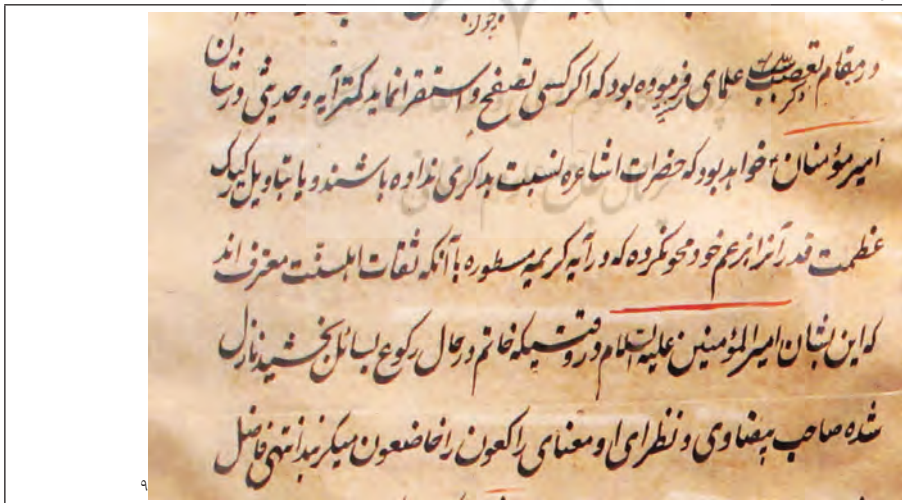 چون
در مقام تعصب علمای فرموده بود که اکر کسی تصفح و استقرا نماید کمتر آیه و حدیثی در شان
امیر مؤمنان خواهد بود که حضرات اشاعره نسبت بدیکری نداده باشند و یا بتاویل رکیک
عظمت قدر آنرا بزعم خود محو نکرده که در آیه کریمه مسطوره با آنکه ثقات اهلسنت معترف اند
که این بشان امیرالمؤمنین علیه السلام در وقتیکه خاتم در حال رکوع بسائل بخشید نازل
شده صاحب بیضاوی و نظرای او معنای راکعون را خاضعون میکرند انتهی فاضل
۹